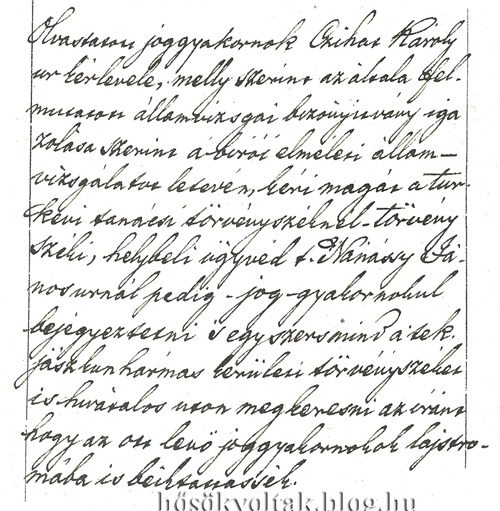 Olvastatott joggyakornok Czihat Károly
ur kérlevele, melly szerint az általa fel-
mutatott államvizsgai bizonyitvány iga
zolása szerint a birói elmeleti állam-
vizsgálatot letevén, kéri magát a tur-
kevi tanácsi törvényszéknél - törvény
széki, helybeli ügyvéd t. Nánássy Já-
nos urnál pedig - jog-gyakornokul
bejegyeztetni s egyszersmind a tek.
jászkun hármas kerületi törvényszéket
is hivatalos uton megkeresni az iránt
hogy az ott levő joggyakornokok lajstro-
mába is béiktattassék.
hősökvoltak.blog.hu